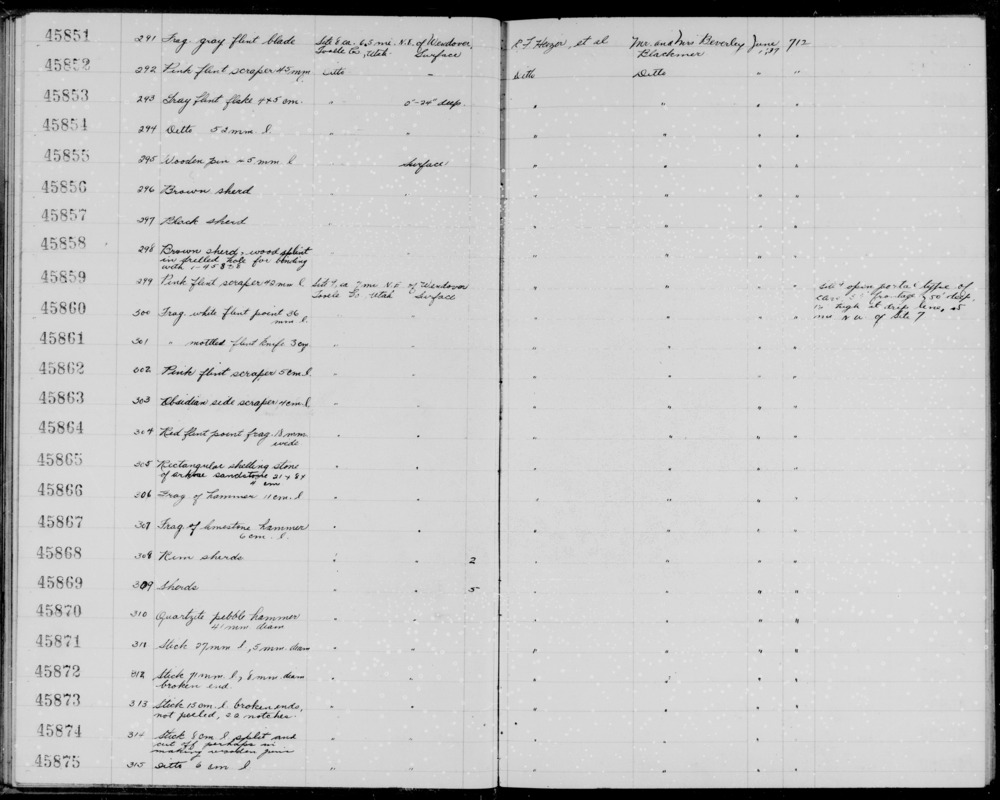 45851 291 Frag. gray flint blade Site 8 ca. 6.5 mi. N.E. of Wendover, R F Heizer, et al Mr. and Mrs Beverley June 712
Tooele Co., Utah Surface Blackmer 1937
45852 292 Pink flint scraper 45 mm Ditto " Ditto Ditto " "
45853 293 Gray flint flake 4 x 5 cm. " 0"-24" deep. " " " "
45854 294 Ditto 52 mm. l. " " " " " "
45855 295 Wooden pin 5 mm l " Surface " " " "
45856 296 Brown sherd " " " " " "
45857 297 Black sherd " " " " " "
45858 298 Brown sherd, wood splint
in drilled hole for binding
with
45859 299 Pink flint scraper 42 mm l Site 9, ca 7 mi N.E. of Wendover " " " " Site 9 open portal type of
Tooele Co Utah Surface 50' deep
45860 300 Frag. white flint point 36 " " " " " " high at drip line, .5
mm l. mi N.W. of Site 7
45861 301 " mottled flint knife 3 cm " " " " " "
45862 302 Pink flint scraper 5 cm l. " " " " " "
45863 303 Obsidian side scraper 4 cm. l " " " " " "
45864 304 Red flint point frag. 13 mm. " " " " " "
wide
45865 305 Rectangular shelling stone " " " " " "
of arkose sandstone 21 x 84
4 cm
45866 306 Frag of hammer 11 cm. l " " " " " "
45867 307 Frag of limestone hammer " " " " " "
6 cm. l.
45868 308 Rim sherds " " 2 " " " "
45869 309 Sherds " " 5 " " " "
45870 310 Quartzite pebble hammer " " " " " "
41 mm diam
45871 311 Stick 27 mm l, 5 mm. diam " " " " " "
45872 312 Stick 71 mm. l, 8 mm diam " " " " " "
broken end.
45873 313 Stick 13 cm. l. broken ends, " " " " " "
not peeled, 22 notches.
45874 314 Stick 8 cm l split and " " " " " "
cut off perhaps in
making wooden pins
45875 315 Ditto 6 cm l " " " " " "